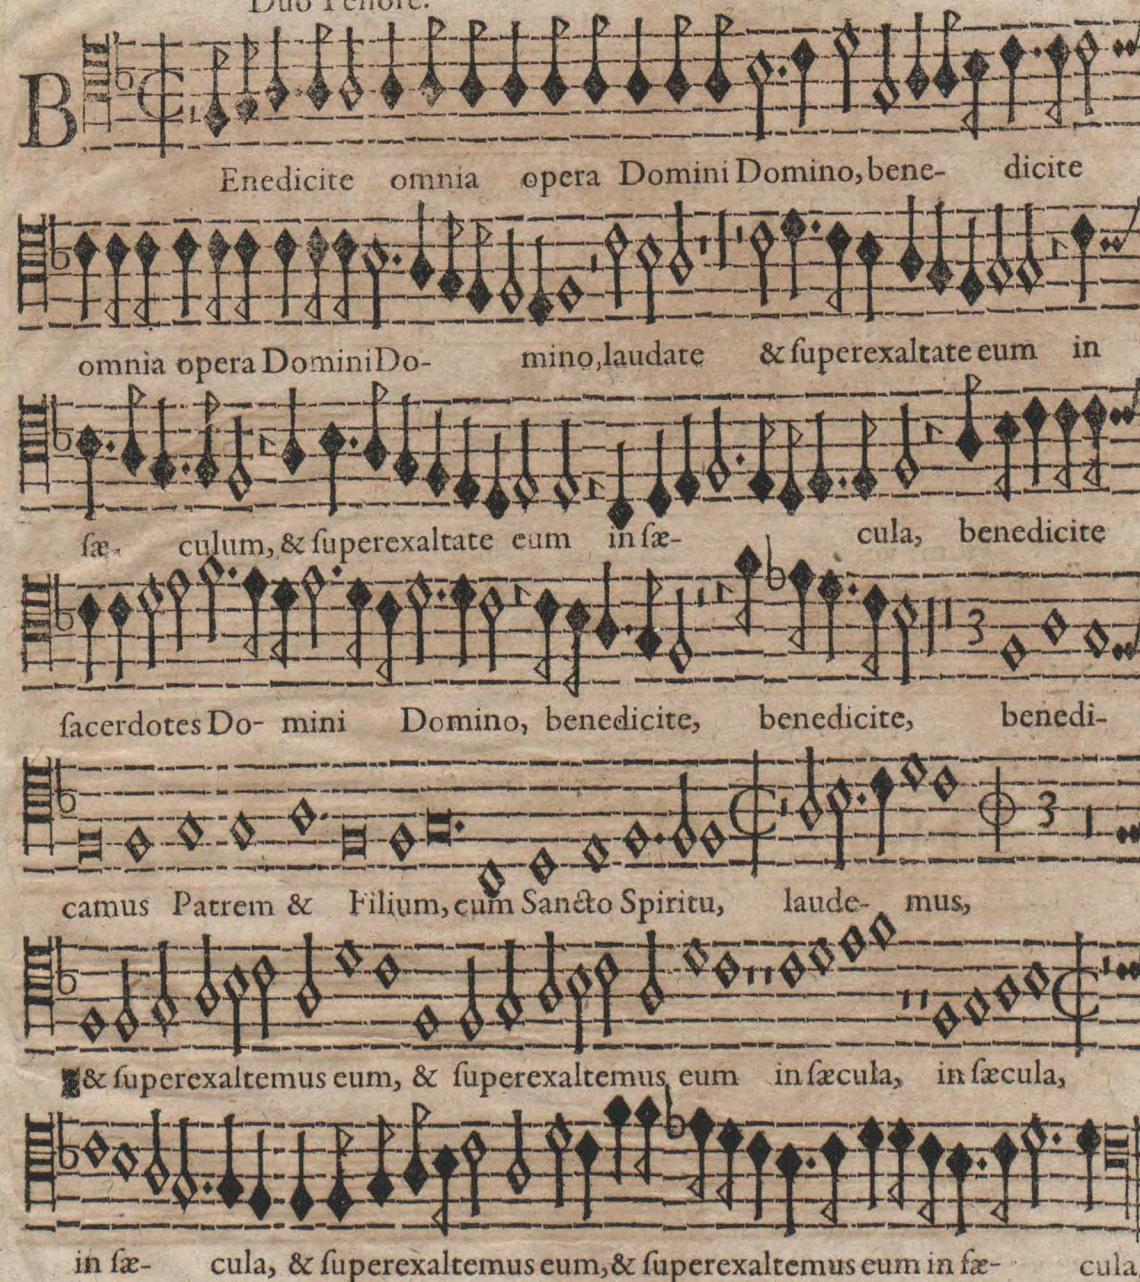 Duo Tenore.
BEnedicite omnia opera Domini Domino, bene- dicite
omnia opera Domini Do- mino, laudate & ſuperexaltate eum in
ſæ- culum, & ſuperexaltate eum in ſæ- cula, benedicite
3
ſacerdotes Do- mini Domino, benedicite, benedicite, benedi-
3
camus Patrem & Filium, cum Sancto Spiritu, laude- mus,
& ſuperexaltemus eum, & ſuperexaltemus eum in ſæcula, in ſæcula,
in ſæ- cula, & ſuperexaltemus eum, & ſuperexaltemus eum in ſæ- cula